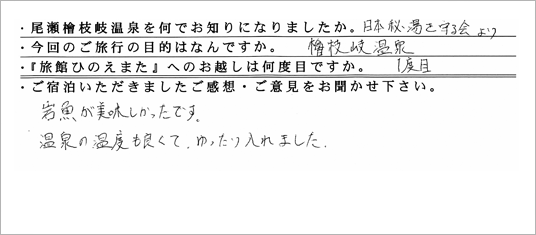 ・尾瀬檜枝岐温泉を何でお知りになりましたか。日本秘湯を守る会より
・今回のご旅行の目的はなんですか。 檜枝岐温泉
・『旅館ひのえまた』へのお越しは何度目ですか。 1度目
・ご宿泊いただきましたご感想・ご意見をお聞かせ下さい。
岩魚が美味しかったです。
温泉の温度も良くて、ゆったり入れました。